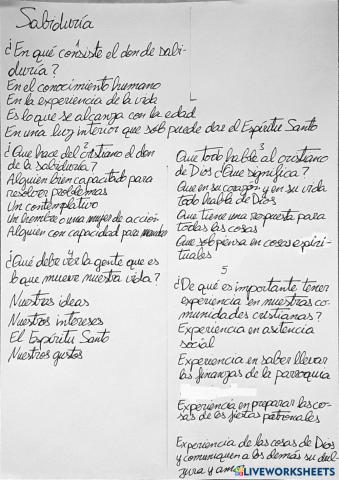 Sabiduría
1
¿En qué consiste el don de sabi-
duría?
En el conocimiento humano
En la experiencia de la vida
Es lo que se alcanza con la edad
En una luz interior que sólo puede dar el Espíritu Santo
2
¿Que hace del cristiano el don
de la sabiduría?
Alguien bien capacitado para
resolver problemas
Un contemplativo
Un hombre o una mujer de acción
Alguien con capacidad para mandar
3
Que todo hable al cristiano
de Dios ¿Que significa?
Que en su corazón y en su vida
todo hable de Dios
Que tiene una respuesta para
todas las cosas
Que solo piensa en cosas espiri-
tuales
4
¿Qué debe ver la gente que es
lo que mueve nuestra vida?
Nuestras ideas
Nuestros intereses
El Espíritu Santo
Nuestros gustos
5
¿De qué es importante tener
experiencia en nuestras co-
munidades cristianas?
Experiencia en asitencia
social
Experiencia en saber llevar
las finanzas de la parroquia
Experiencia en preparar las co-
sas de las fiestas patronales
Experiencia de las cosas de Dios
y comuniquen a los demás su dul-
zura y amor
LIVEWORKSHEETS